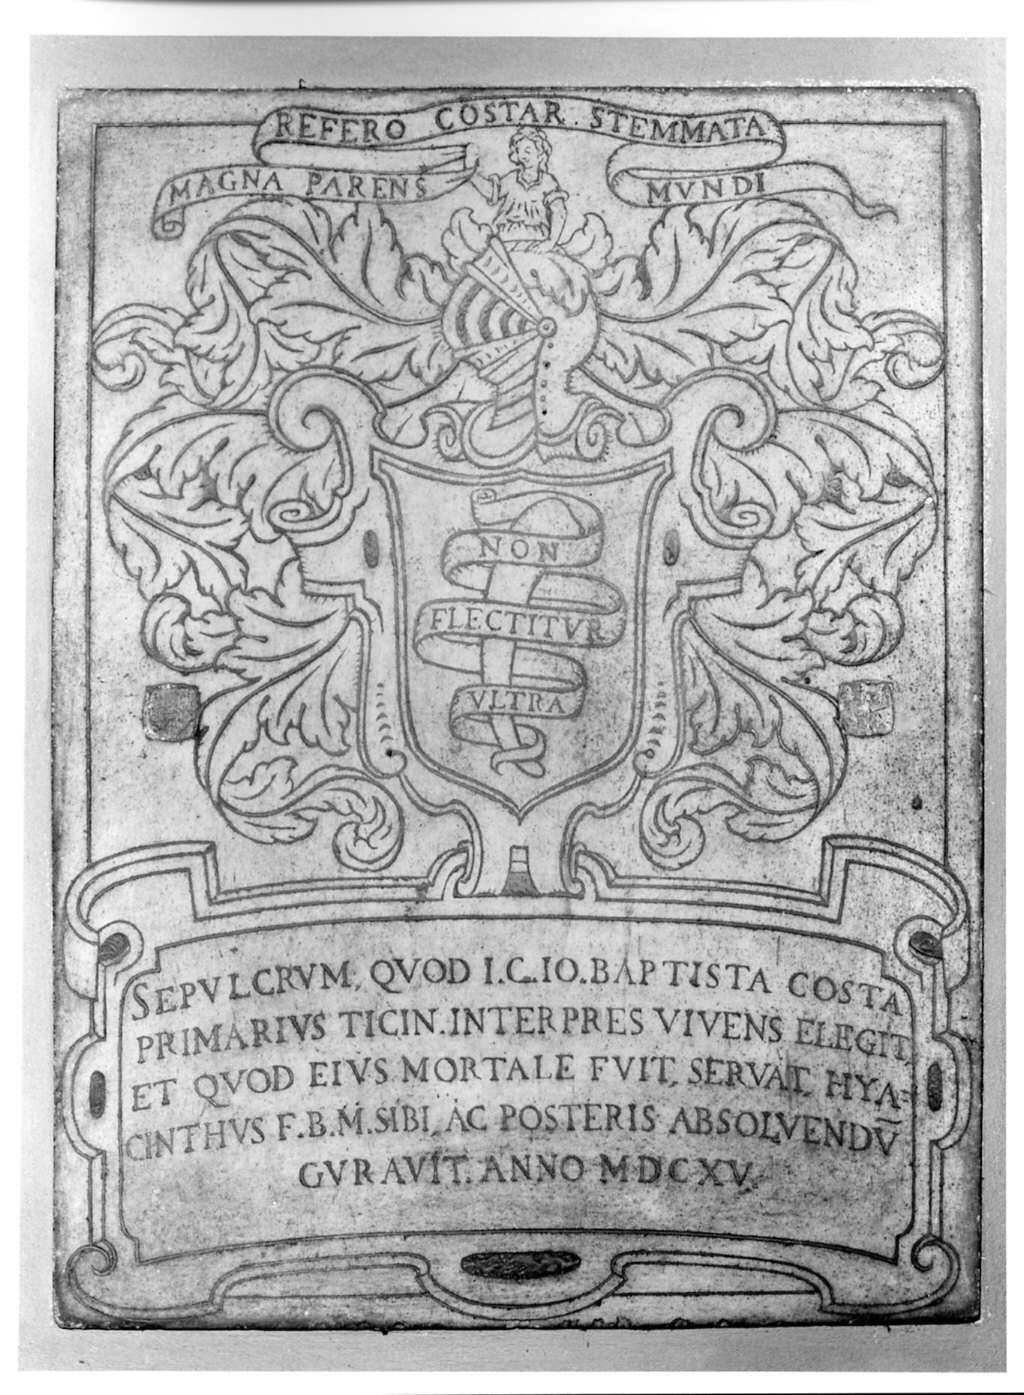 REFERO COSTAR. STEMMATA
MAGNA PARENS MVNDI
NON
FLECTITVR
VLTRA
SEPVLCRVM, QVOD I.C.IO.BAPTISTA COSTA
PRIMARIVS TICIN.INTERPRES VIVENS ELEGIT,
ET QVOD EIVS MORTALE FVIT, SERVAT, HYA=
CINTHVS F.B.M.SIBI, AC POSTERIS ABSOLVENDV̄
CVRAVIT. ANNO MDCXV.